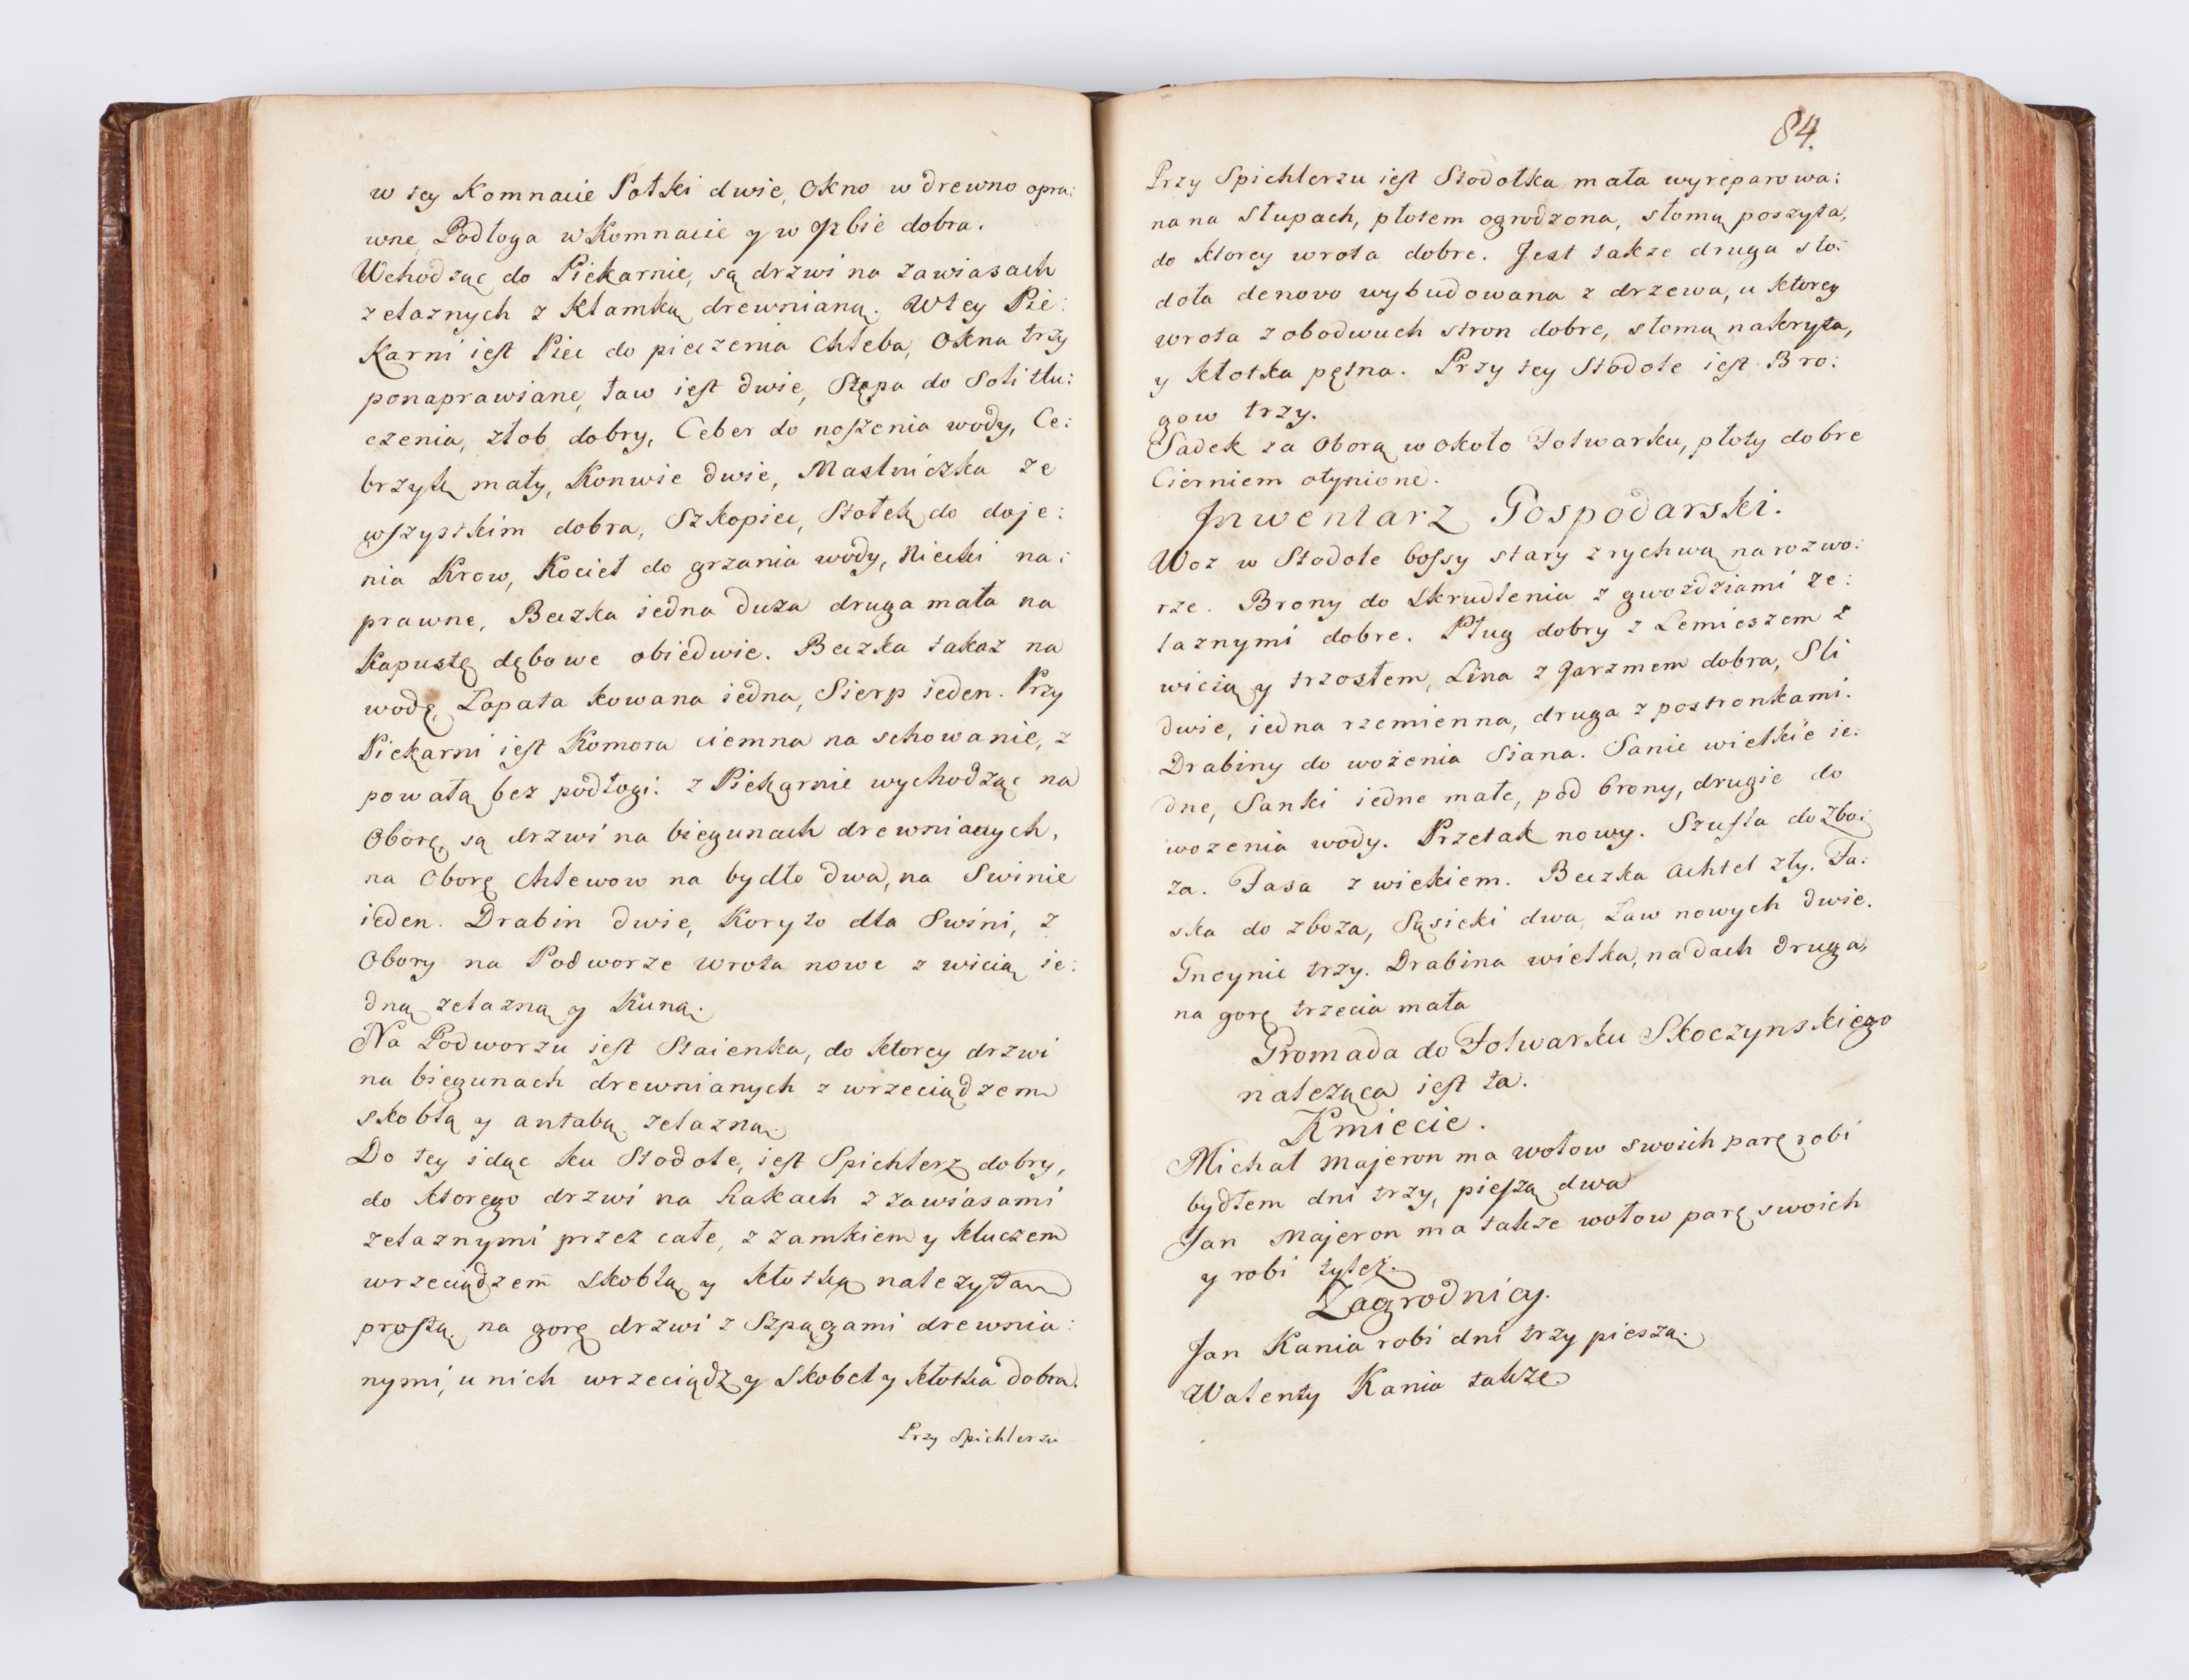 w tey Komnacie Połki dwie, Okno w drewno opra:
wne, Podłoga w Komnacie y w Jzbie dobra.
Wchodząc do Piekarnie, są drzwi na zawiasach
zelaznych z Klamką drewnianą. W tey Pie:
karni iest Piec do pieczenia Chleba, Okna trzy
ponaprawiane, ław iest dwie, Stępa do Soli tłu:
czenia, złob dobry, Ceber do noszenia wody, Ce:
brzyk mały, Konwie dwie, Maslniczka ze
wszystkim dobra, Szkopiec, Stołek do doje:
nia Krow, Kocieł do grzania wody, Niecki na:
prawne, Beczka iedna duza druga mała na
Kapustę dębowe obiedwie. Beczka takaz na
wodę, Łopata kowana iedna, Sierp ieden. Przy
Piekarni iest Komora ciemna na schowanie, z
powałą bez podłogi. z Piekarnie wychodząc na
Oborę, są drzwi na biegunach drewnianych,
na Oborę Chlewow na bydło dwa, na Swinie
ieden. Drabin dwie, Koryto dla Swini, z
Obory na Podworze wrota nowe z wicią ie:
dną zelazną y Kuną.
Na Podworzu iest Staienka, do ktorey drzwi
na biegunach drewnianych z wrzeciądzem
skoblą y antabą zelazną.
Do tey idąc ku Stodole, iest Spichlerz dobry,
do ktorego drzwi na hakach z zawiasami
zelaznymi przez całe, z zamkiem y kluczem
wrzeciądzem skoblą y kłotką nalezytą
prostą, na gorę drzwi z Szpągami drewnia:
nymi, u nich wrzeciądz y skobel y kłotka dobra.
Przy Spichlerzu
84.
Przy Spichlerzu iest Stodołka mała wyreparowa:
na na Słupach, płotem ogrodzona, słomą poszyta,
do ktorey wrota dobre. Jest takze druga sto:
doła denovo wybudowana z drzewa, u ktorey
wrota z obodwuch stron dobre, słomą nakryta,
y kłotka pętna. Przy tey Stodole iest Bro:
gow trzy.
Sadek za Oborą w około Folwarku, płoty dobre
Cierniem otynione.
Jnwentarz Gospodarski.
Woz w Stodole bossy stary z rychwą na rozwo:
rze. Brony do skrudlenia z gwozdziami ze:
laznymi dobre. Pług dobry z Lemieszem z
wicią y trzosłem, Lina z Jarzmem dobra, Sli
dwie, iedna rzemienna, druga z postronkami.
Drabiny do wożenia Siana. Sanie wielkie ie:
dne, Sanki iedne małe, pod brony, drugie do
wozenia wody. Przetak nowy. Szufla do Zbo:
za. Fasa z wiekiem. Beczka Achtel zły. Fa:
ska do zboza, Sąsieki dwa, Ław nowych dwie.
Gnoynie trzy. Drabina wielka, na dach druga,
na gorę trzecia mała
Gromada do Folwarku Skoczynskiego
naleząca iest ta.
Kmiecie.
Michał Majeron ma wołow swoich parę robi
bydłem dni trzy, pieszą dwa
Jan Majeron ma takze wołow parę swoich
y robi tyleż.
Zagrodnicy.
Jan Kania robi dni trzy pieszą.
Walenty Kania takze